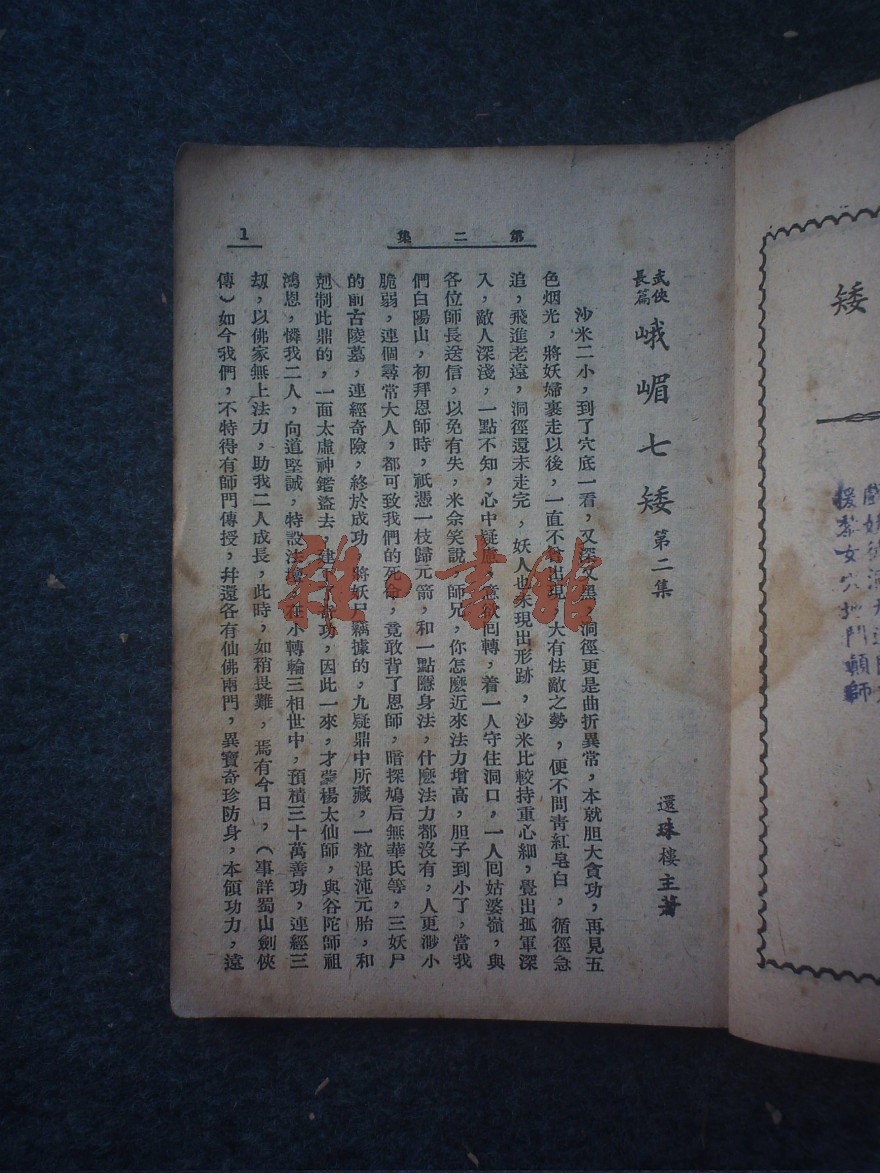 第二集
1
武俠長篇 峨嵋七矮 第二集
還珠樓主著
沙米二小，到了穴底一看，又深又黑，洞徑更是曲折異常，本就胆大貪功，再見五
色烟光，將妖婦裹走以後，一直不曾出現，大有怯敵之勢，便不問靑紅皂白，循徑急
追，飛進老遠，洞徑還未走完，妖人也未現出形跡，沙米比較持重心細，覺出孤軍深
入，敵人深淺，一點不知，心中疑慮，意欲回轉，着一人守住洞口，一人回姑婆嶺，與
各位師長送信，以免有失，米余笑說，師兄，你怎麽近來法力增高，胆子到小了，當我
們白陽山，初拜恩師時，祇憑一枝歸元箭，和一點隱身法，什麽法力都沒有，人更渺小
脆弱，連個尋常大人，都可致我們的死命，竟敢背了恩師，暗探鳩后無華氏等，三妖尸
的前古陵墓，連經奇險，終於成功，將妖尸竊據的，九疑鼎中所藏，一粒混沌元胎，和
剋制此鼎的，一面太虛神鑑盜去，建了奇功，因此一來，才蒙楊太仙師，與谷陀師祖
鴻恩，憐我二人，向道堅誠，特設法壇，在小轉輪三相世中，預積三十萬善功，連經三
刼，以佛家無上法力，助我二人成長，此時，如稍畏難，焉有今日，（事詳蜀山劍俠
傳）如今我們，不特得有師門傳授，幷還各有仙佛兩門，異寶奇珍防身，本領功力，遠
矮
援
女穴
門
師
雜·書館